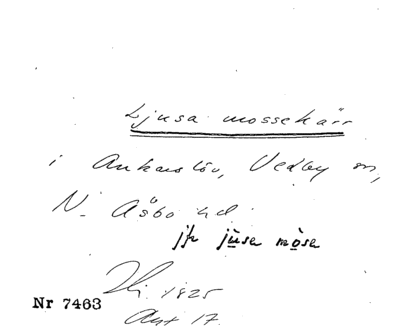 Ljusa mossekärr
i Ankarslöv, Vedby sn,
N. Åsbo hd.
jfr jùsa mòse
1925
Nr 7463
17.